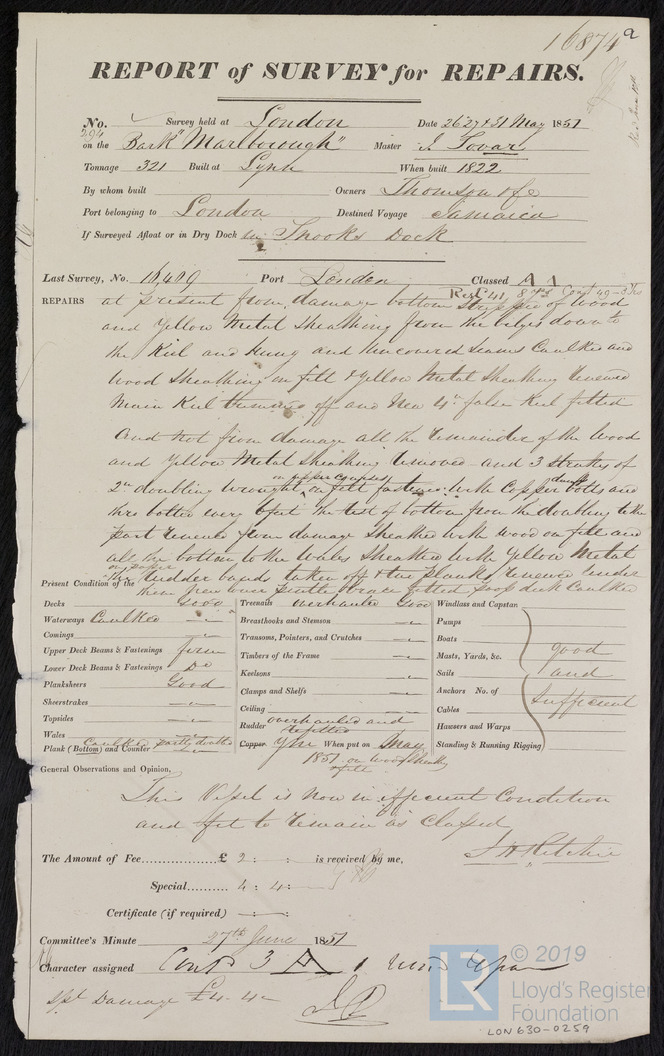 16874a
REPORT of SURVEY for REPAIRS.
No. 294 Survey held at London Date 26 27 & 31 May 1851
on the Bark "Marlborough" Master J. Tovar
Tonnage 321 Built at Lynn When built 1822
By whom built Owners Thomson & Co
Port belonging to London Destined Voyage Jamaica
If Surveyed Afloat or in Dry Dock in Snooks Dock
Last Survey, No. 16,409 Port London Classed A 1
Rest 41, 8 yrs Contd 49 - 3 Yrs
REPAIRS at present from damage bottom stripped of Wood
and Yellow Metal Sheathing from the bilges down to
the Keel and hung and uncovered Seams Caulked and
Wood Sheathing on felt & Yellow Metal Sheathing renewed
Main Keel trimmed off and New 4in false Keel fitted
And not from damage all the remainder of the Wood
and Yellow Metal Sheathing removed and 3 strakes of
2in doubling wrought on felt fastened with Copper bolts and
thro bolted every 6 feet the rest of bottom from the doubling to the
part renewed from damage Sheathed with wood on felt and
all the bottom to the Wales Sheathed with Yellow Metal
the rudder bands taken off & two planks renewed under
them poop deck Caulked
Present Condition of the
Decks Good
Waterways Caulked
Comings
Upper Deck Beams & Fastenings firm
Lower Deck Beams & Fastenings Do
Planksheers Good
Sheerstrakes
Topsides
Wales
Plank (Bottom) and Counter Caulked partly doubled
Treenails overhauled Good
Breasthooks and Stemson
Transoms, Pointers, and Crutches
Timbers of the Frame
Keelsons
Clamps and Shelfs
Ceiling
Rudder overhauled and refitted
Copper YM When put on May
1851 on wood sheathg
& felt
Windlass and Capstan
Pumps
Boats
Masts, Yards, &c. good
Sails and
Anchors No. of sufficient
Cables
Hawsers and Warps
Standing & Running Rigging
General Observations and Opinion,
This Vessel is now in efficient Condition
and fit to remain as Classed
The Amount of Fee £ 2 : : is received by me, J H Ritchie
Special 4 : 4 :
Certificate (if required)
Committee's Minute 27th June 1851
Character assigned Contd 3 A 1
Spl Damage £4.4
© 2019
LR
Lloyd's Register
Foundation
LON630-0259